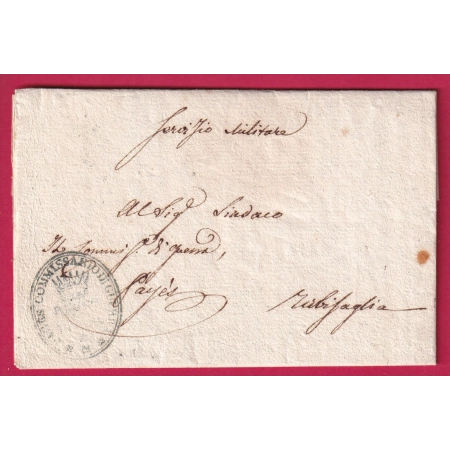 Servizio Militare
Al Sig.r Sindaco
Il Commis.
di guerra,
Pagès
Urbisaglia
COMMISSARIO